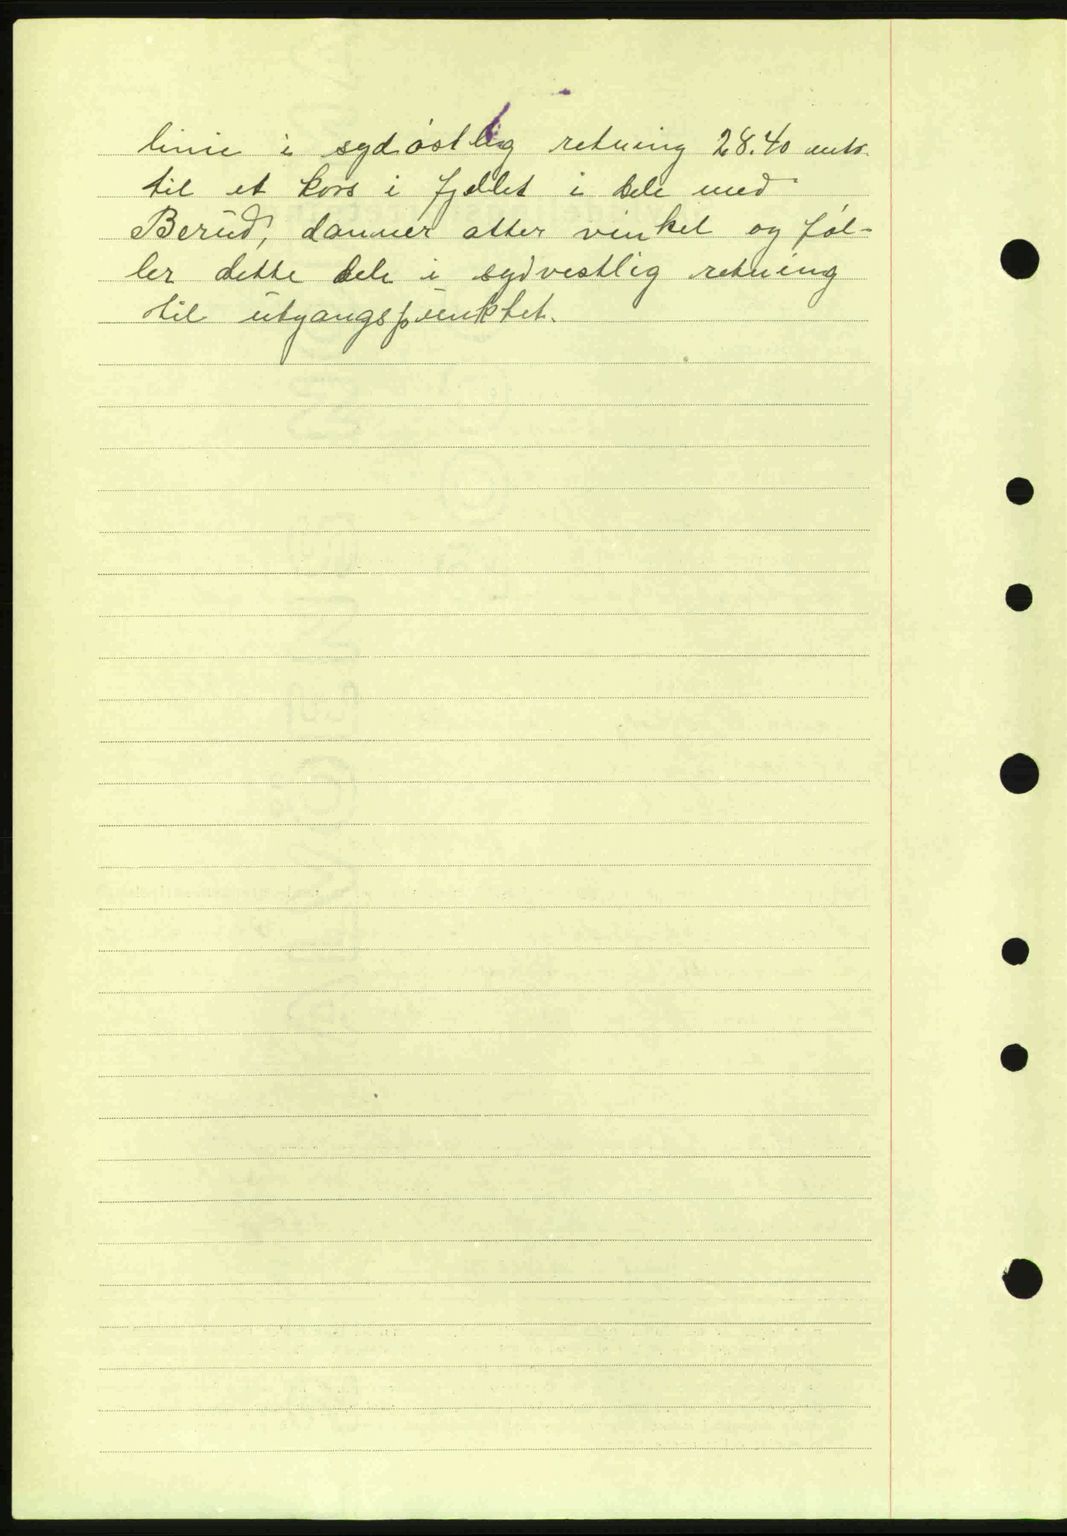 linie i sydøstlig retning 28.40 mtr.
til et kors i fjellet i dele med
Berud, danner atter vinkel og føl-
ler dette dele i sydvestlig retning
til utgangspunktet.